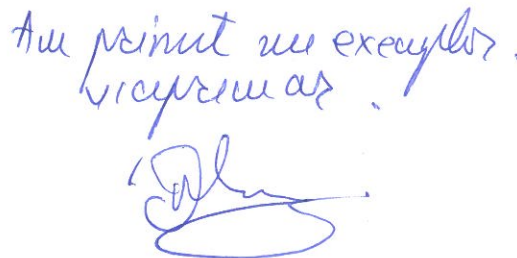 Am primit un exemplar.
viceprimar.